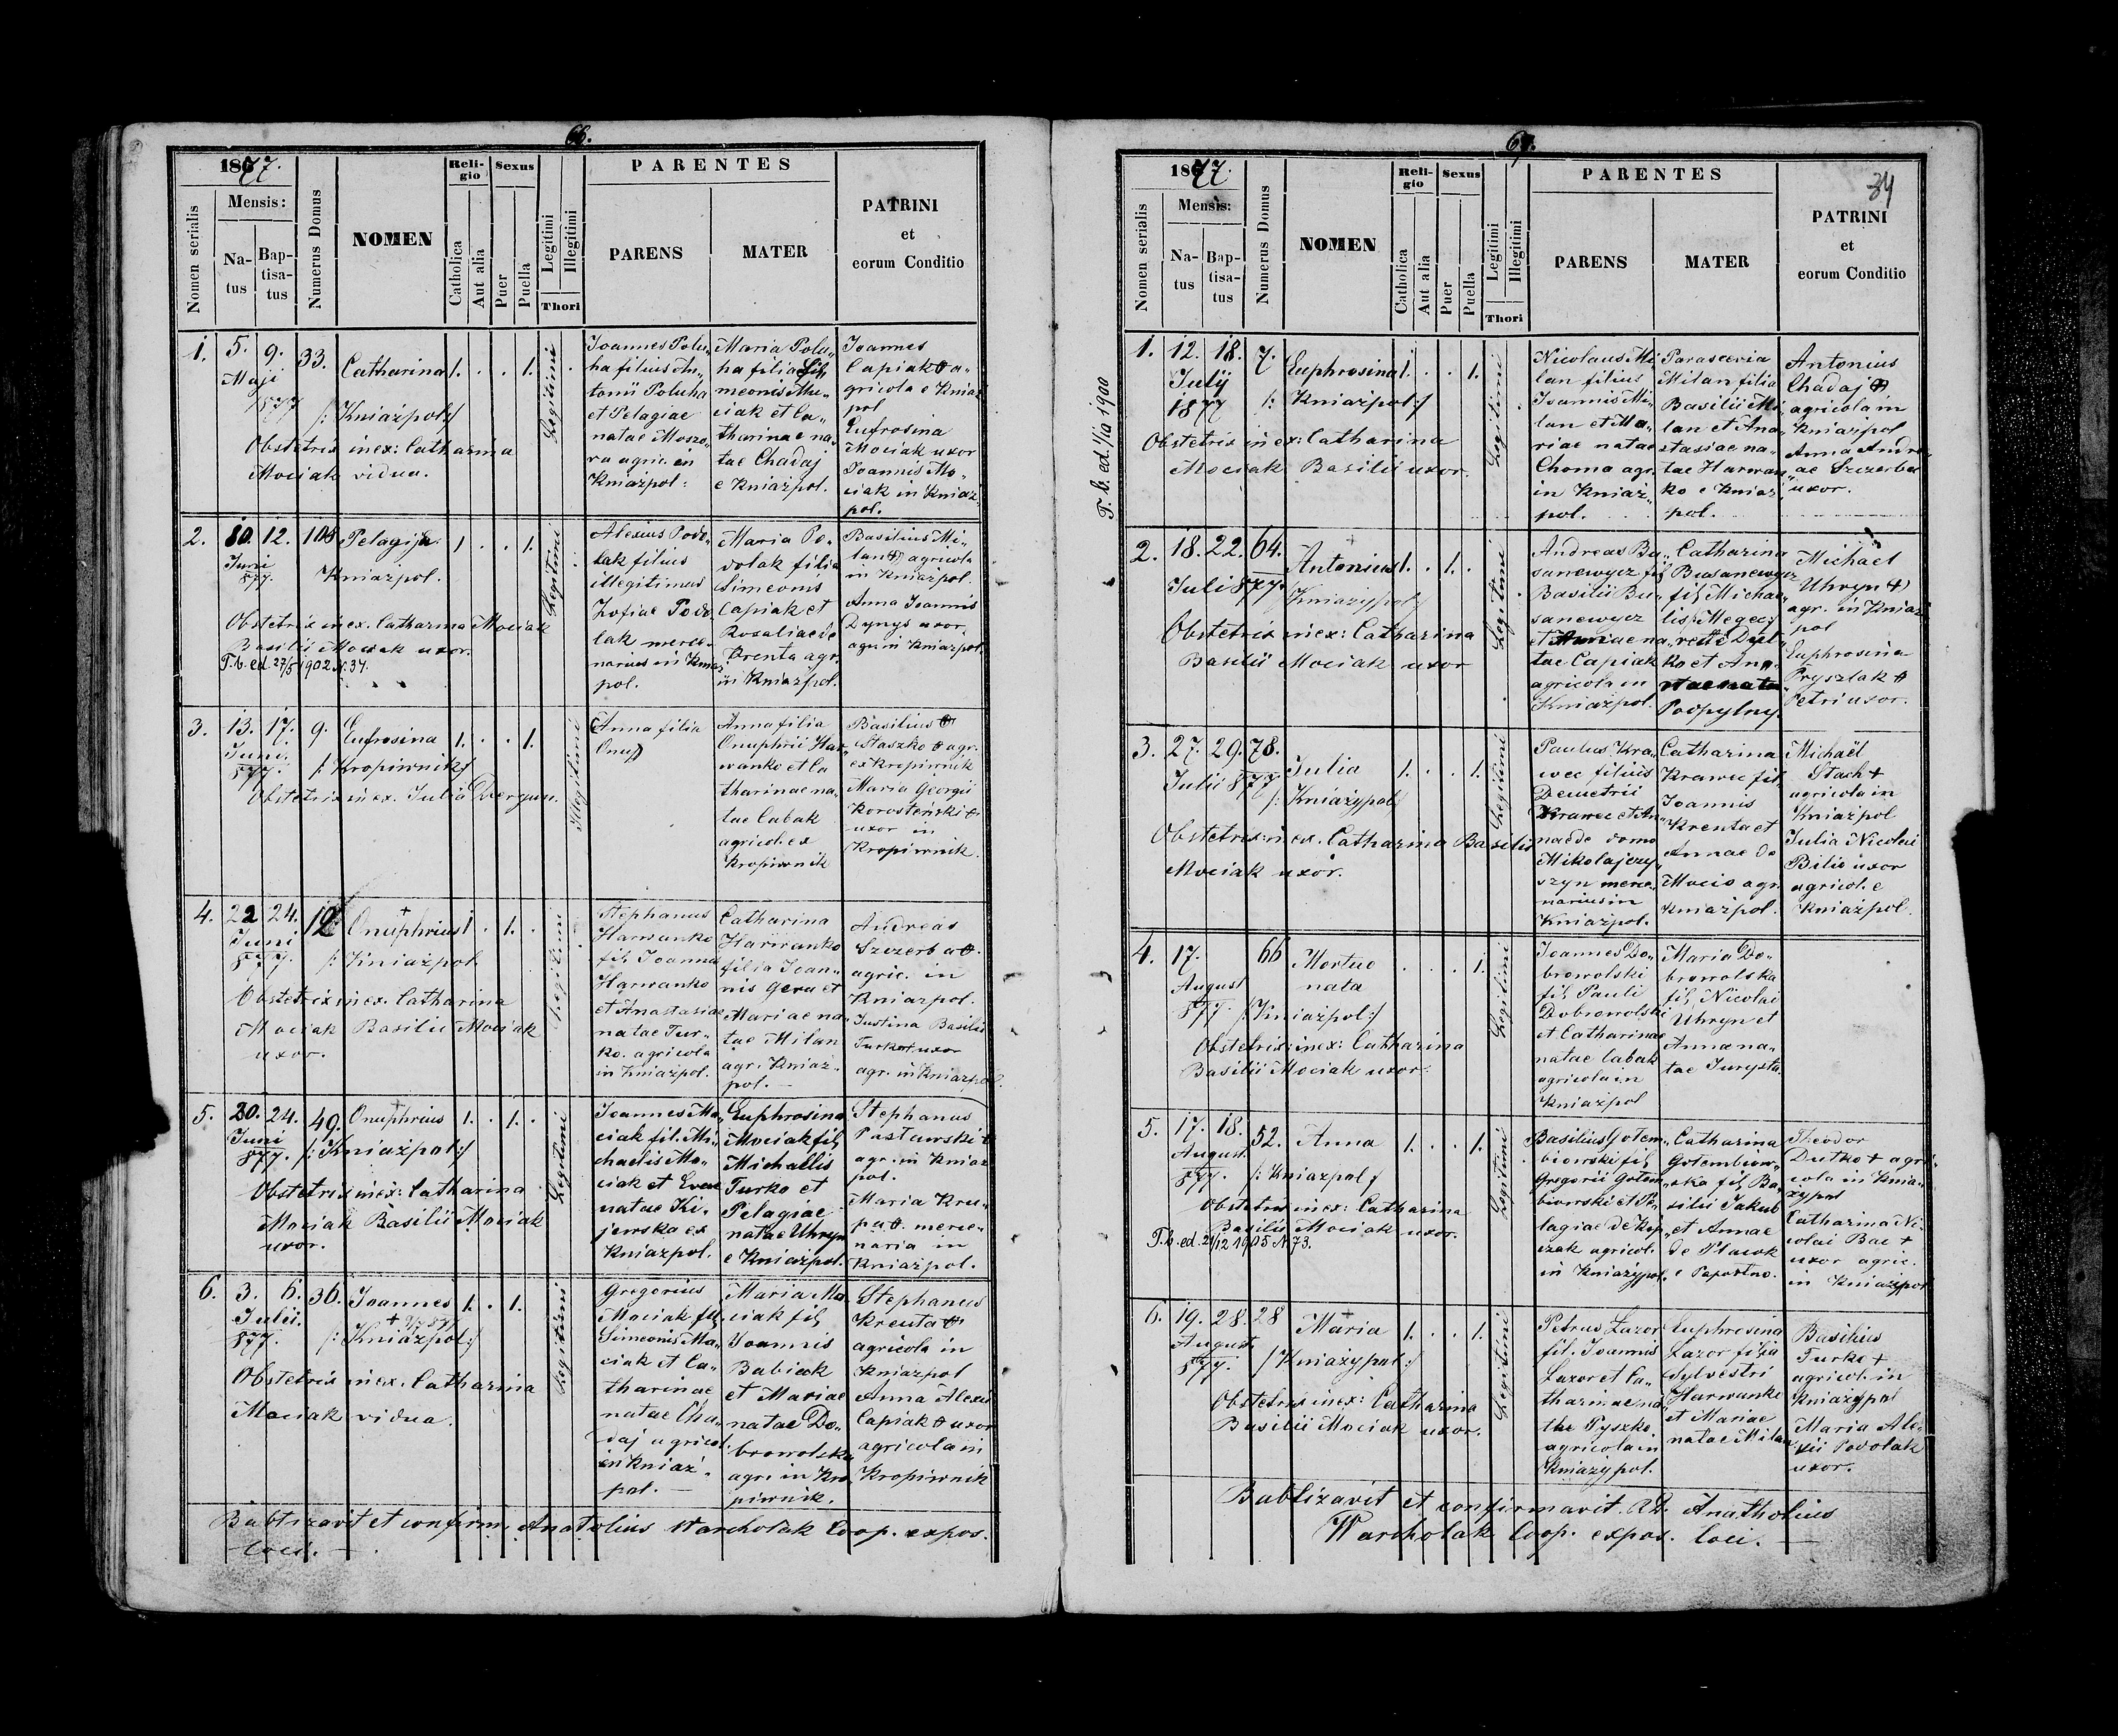 66.
1877.
Mensis:
Nomen serialis
Na-
tus
Bap-
tisa-
tus
Numerus Domus
NOMEN
Reli-
gio
Catholica
Aut alia
Sexus
Puer
Puella
Legitimi
Illegitimi
Thori
PARENTES
PARENS
MATER
PATRINI
et
eorum Conditio
1. 5. 9. 33. Catharina 1. . . 1.
Maji
1877 /: Kniaźpol:/
Obstetrix inex: Catharina
Mociak vidua.
Legitimi
Joannes Polu„
ha filius An„
tonii Poluha
et Pelagiae
natae Moszo„
ra agric. in
Kniaźpol.
Maria Polu„
ha filia Si„
meonis Mu„
ciak et Ca„
tharinae na„
tae Chadaj
e Kniaźpol.
Joannes
Capiak a„
gricola e Kniaź
pol
Eufrosina
Mociak uxor
Joannis Mo„
ciak in Kniaź
pol.
2. 10. 12. 105 Pelagija 1 . . 1.
Juni
877. Kniaźpol.
Obstetrix inex. Catharina Mociak
Basilii Mociak uxor.
T.b. ed. 27/5 1902 N. 34.
Legitimi
Alexius Podo„
lak filius
illegitimus
Zofiae Podo„
lak merce„
narius in Kniaź
pol.
Maria Po„
dolak filia
Simeonis
Capiak et
Rosaliae de
Krenta agr.
in Kniaźpol.
Basilius Mi„
lan agricola
in Kniaźpol.
Anna Joannis
Dynys uxor.
agr. in Kniaźpol.
3. 13. 17. 9. Eufrosina 1. . . 1.
Juni.
877. /: Kropiwnik:/
Obstetrix inex. Julia Dzergun.
Illegitimi
Anna filia
Onup
Anna filia
Onuphrii Har„
wanko et Ca
tharinae na„
tae Cabak
agricol. ex
Kropiwnik
Basilius
Staszko agr.
ex Kropiwnik
Maria Georgii
Korosteński
uxor in
Kropiwnik.
4. 22 24. 12. Onuphrius 1 . 1. .
Juni
877. /: Kniaźpol
Obstetrix inex. Catharina
Mociak Basilii Mociak
uxor.
Legitimi
Stephanus
Harwanko
fil. Joannis
Harwanko
et Anastasiae
natae Tur„
ko. agricola
in Kniaźpol.
Catharina
Harwanko
filia Joan„
nis Gera et
Mariae na„
tae Milan
agr. Kniaź„
pol. —
Andreas
Szczerba
agric. in
Kniaźpol.
Justina Basilii
Turko uxor
agr. in Kniaźpol.
5. 20. 24. 49. Onuphrius 1. . 1. .
Juni
877. /: Kniaźpol:/
Obstetrix inex: Catharina
Mociak Basilii Mociak
uxor.
Legitimi
Joannes Mo„
ciak fil. Mi„
chaelis Mo„
ciak et Evae
natae Ki„
jewska ex
Kniaźpol.
Euphrosina
Mociak fil.
Michallis
Turko et
Pelagiae
natae Uhryn
e Kniaźpol.
Stephanus
Pastawski
agr. in Kniaź
pol.
Maria Kru„
pa merce„
naria in
Kniaźpol.
6. 3. 6. 36. Joannes 1. . 1.
Julii
877. /: Kniaźpol:/
Obstetrix inex. Catharina
Mociak vidua.
Legitimi
Gregorius
Mociak fil.
Simeonis Mo„
ciak et Ca„
tharinae
natae Cha„
daj agricol.
in Kniaź„
pol. —
Maria Mo„
ciak fil.
Joannis
Babiak
et Mariae
natae Do„
browolska
agr. in Kro„
piwnik.
Stephanus
Krenta
agricola in
Kniaźpol
Anna Alexii
Capiak uxor
agricola in
Kropiwnik
Babtizavit et confirm. Anatolius Warchołak Coop. expos.
loci. —
67.
34
1877.
Mensis:
Nomen serialis
Na-
tus
Bap-
tisa-
tus
Numerus Domus
NOMEN
Reli-
gio
Catholica
Aut alia
Sexus
Puer
Puella
Legitimi
Illegitimi
Thori
PARENTES
PARENS
MATER
PATRINI
et
eorum Conditio
T. b. ed. 1/10 1900
1. 12. 18. 7. Euphrosina 1. . . 1.
Julij
1877 /: Kniaźpol:/
Obstetrix inex: Catharina
Mociak Basilii uxor.
Legitimi
Nicolaus Mi„
lan filius
Joannis Mi„
lan et Ma„
riae natae
Choma agr.
in Kniaź„
pol.
Parascevia
Milan filia
Basilii Mi„
lan et Ana„
stasiae na„
tae Harwan„
ko e Kniaź
pol.
Antonius
Chadaj
agricola in
Kniaźpol
Anna Andre„
ae Szczerba
uxor.
2. 18. 22. 64. Antonius 1. . 1. .
Juli 877. /Kniaźypol/
Obstetrix inex: Catharina
Basilii Mociak uxor
Legitimi
Andreas Bu„
sanewycz fil.
Basilii Bu„
sanewycz
et Annae na„
tae Capiak
agricola in
Kniaźpol.
Catharina
Busanewycz
fil. Michae„
lis Megec
recte Dut„
ko et Ana„
stae nata
Podpylny.
Michael
Uhryn
agr. in Kniaź
pol
Euphrosina
Pryszlak
Petri uxor.
3. 27. 29. 78. Julia 1. . . 1.
Julii 877 /: Kniaźypol/
Obstetrix in ex. Catharina Basilii
Mociak uxor.
Legitimi
Paulus Kra„
wec filius
Demetrii
Krawec et An„
nae de domo
Mikołajczy„
szyn merce„
narius in
Kniaźpol.
Catharina
Krawec fil.
Joannis
Krenta et
Annae de
Mocio agr.
Kniaźpol.
Michaël
Stach
agricola in
Kniaźpol
Julia Nicolai
Bilio uxor
agricol. e
Kniaźpol.
4. 17. 66 Mortuo . . . 1.
nata
August
877. /: Kniaźpol:/
Obstetrix: inex: Catharina
Basilii Mociak uxor.
Legitimi
Joannes Do„
browolski
fil. Pauli
Dobrowolski
et Catharinae
natae Cabak
agricola in
Kniaźpol
Maria Do„
browolska
fil. Nicolai
Uhryn et
Annae na„
tae Jurysta.
5. 17. 18. 52. Anna 1. . . 1.
August
877. /: Kniaźpol/
Obstetrix inex: Catharina
Basilii Mociak uxor.
T.b. ed. 21/12 1905 N 73.
Legitimi
Basilius Gołem„
biowski fil.
Gregorii Gołem„
biowski et Pe„
lagiae de Kop„
czak agricol.
in Kniaźypol.
Catharina
Gołembiow„
ska fil. Ba„
silii Jakub
et Annae
de Placok
e Paportno.
Theodor
Dutko agri„
cola in Knia„
źypol
Catharina Ni„
colai Bac
uxor agric.
in Kniaźypol
6. 19. 28. 28 Maria 1. . . 1.
August
877. /: Kniaźypol:/
Obstetrix inex: Catharina
Basilii Mociak uxor.
Legitimi
Petrus Lazor
fil. Joannis
Lazor et Ca„
tharinae na„
tae Pyszko
agricola in
Kniaźypol.
Euphrosina
Lazor filia
Sylvestri
Harwanko
et Mariae
natae Milan
Basilius
Turko
agricol. in
Kniaźypol
Maria Ale„
xii Podolak
uxor.
Babtizavit et confirmavit. R.D. Anatholius
Warchołak Coop. expos. loci. —